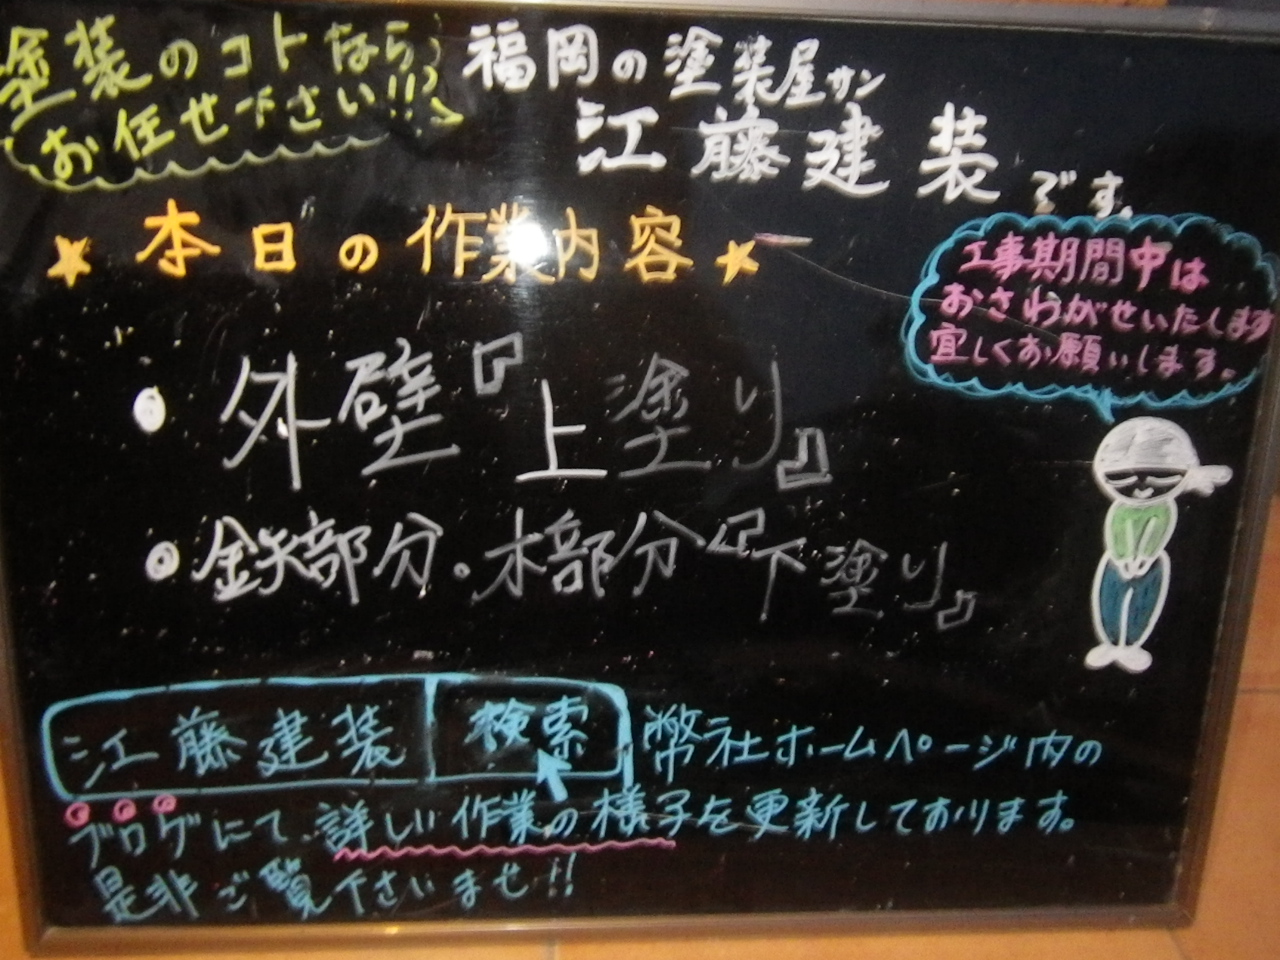 塗装のコトなら
お任せ下さい!!
福岡の塗装屋サン
江藤建装です。
★本日の作業内容★
工事期間中は
おさわがせいたします
宜しくお願いします。
・外壁『上塗り』
・鉄部分・木部分『下塗り』
江藤建装 検索
弊社ホームページ内の
ブログにて、詳しい作業の様子を更新しております。
是非ご覧下さいませ!!